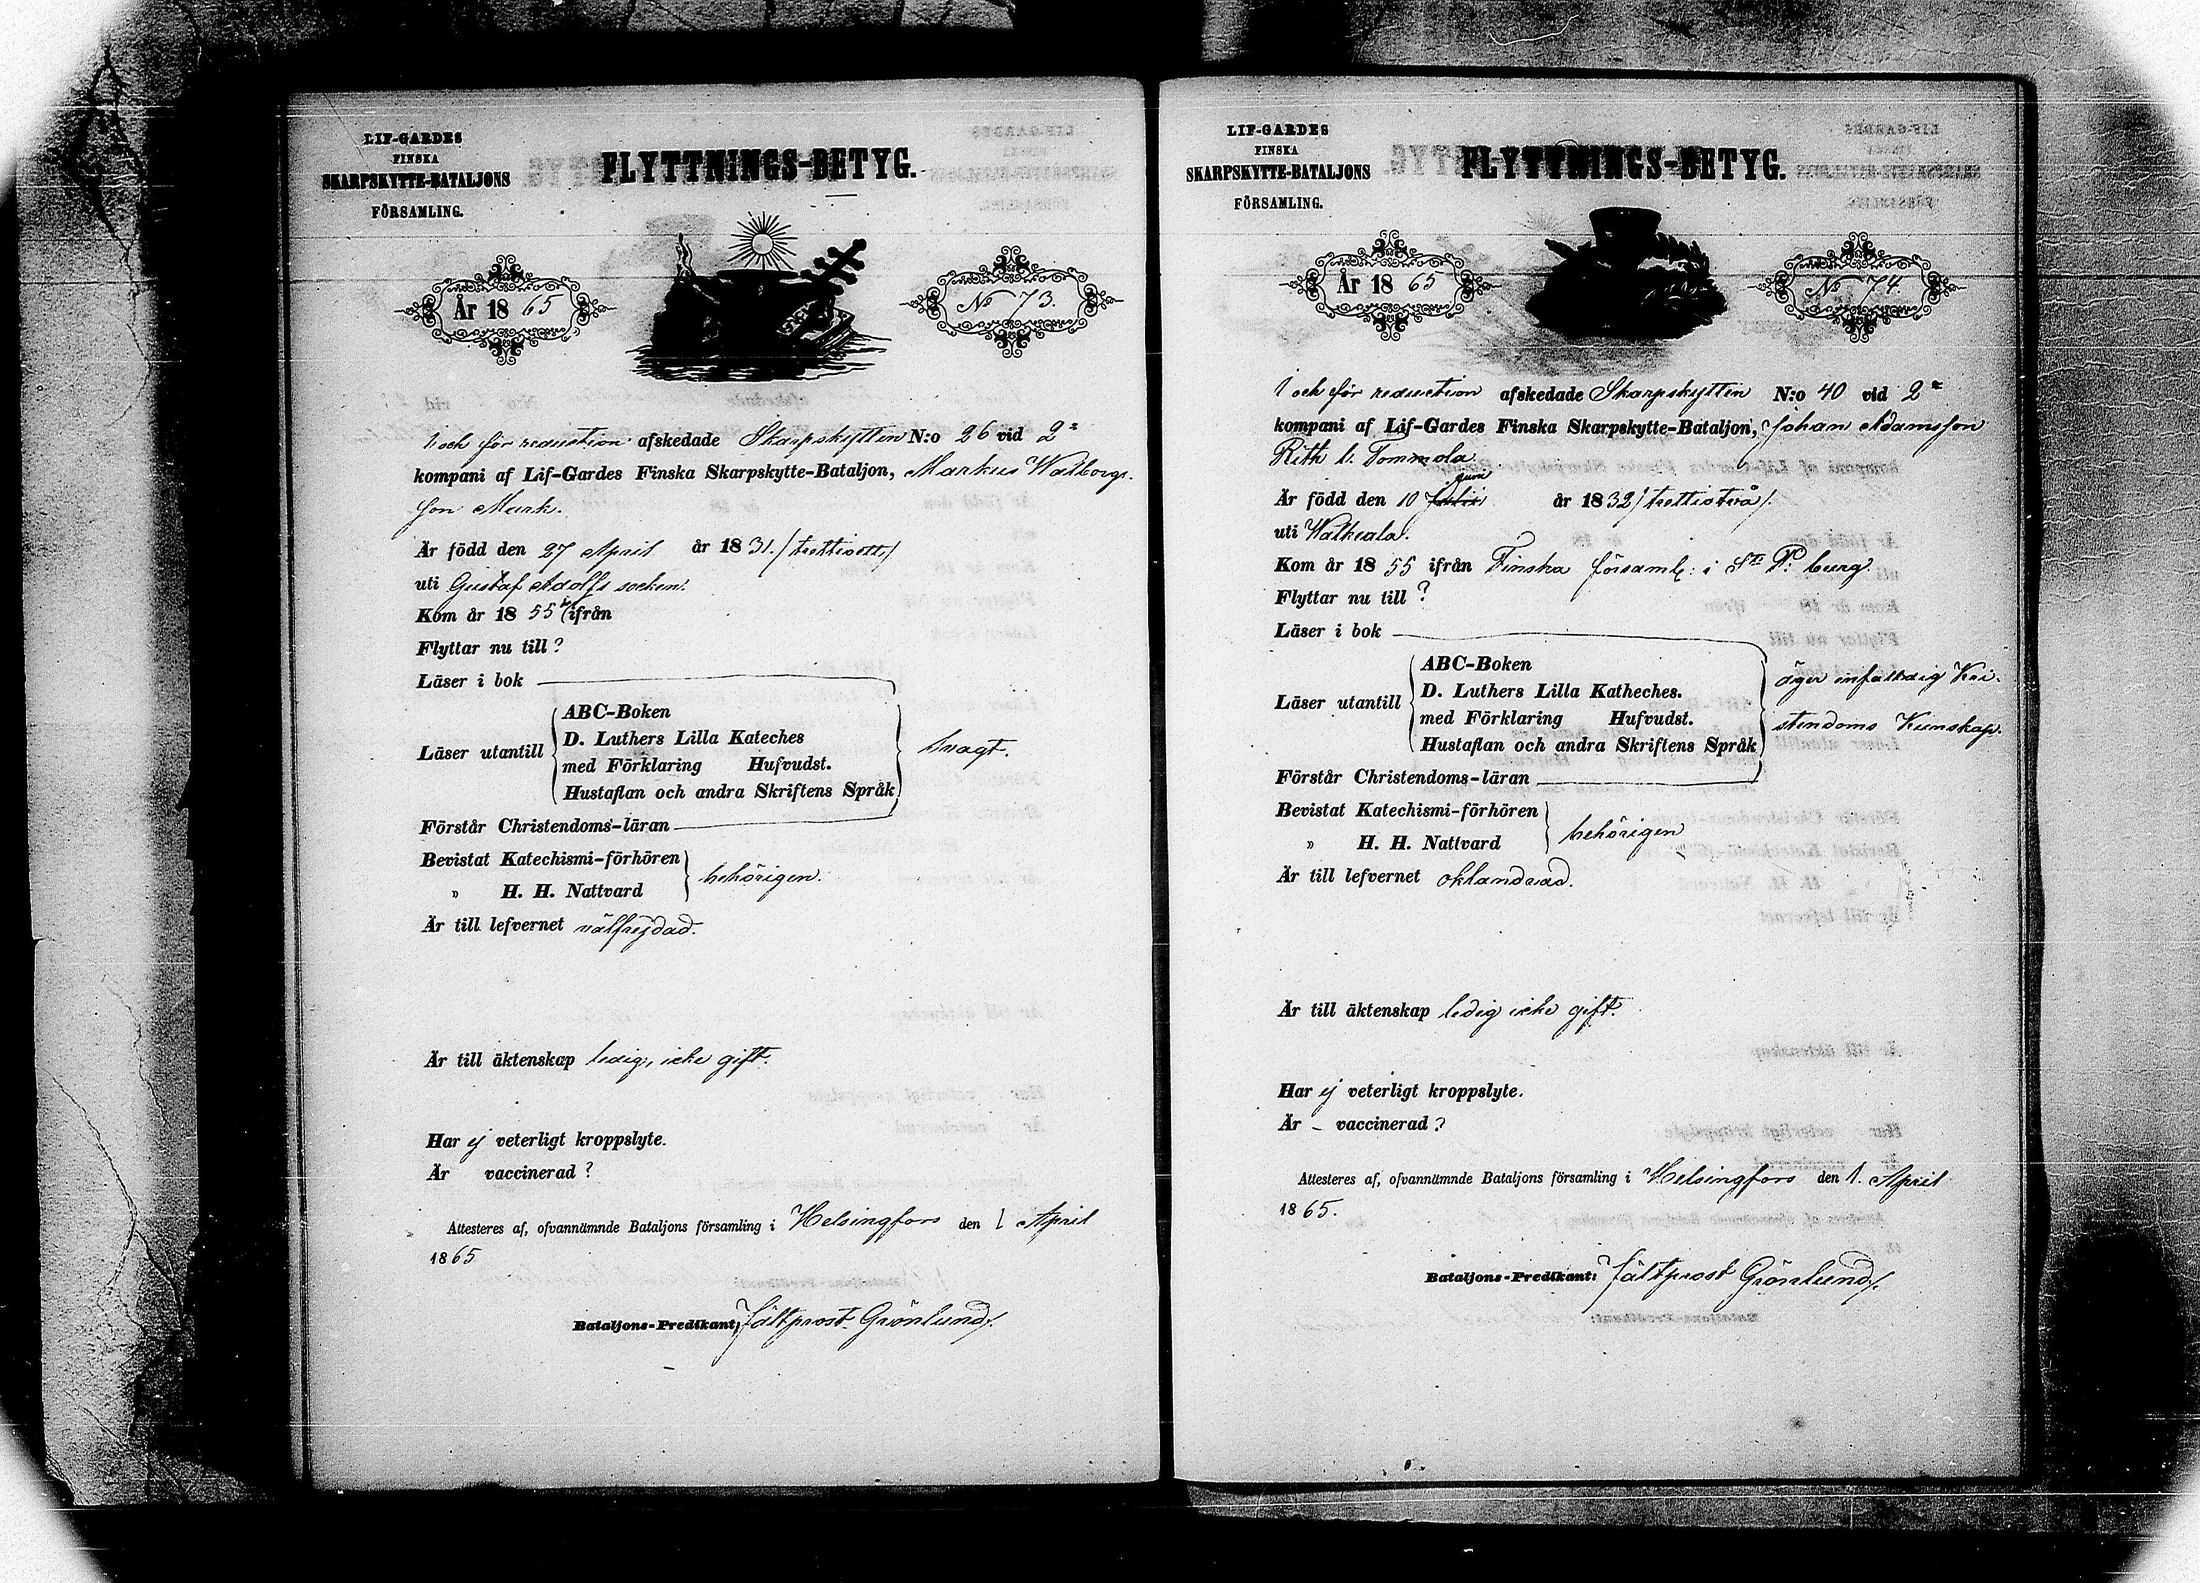 LIF-GARDES
FINSKA
SKARPSKYTTE-BATALJONS
FÖRSAMLING.
FLYTTNINGS-BETYG.
År 18 65
No 73.
I och för reduction afskedade Skarpskytten N:o 26 vid 2a
kompani af Lif-Gardes Finska Skarpskytte-Bataljon, Markus Walborgs
son Murk.
Är född den 27 April år 1831. /trettioett/
uti Gustaf Adolfs socken.
Kom år 18 55 ifrån
Flyttar nu till?
Läser i bok
Läser utantill
ABC-Boken
D. Luthers Lilla Kateches
med Förklaring Hufvudst.
Hustaflan och andra Skriftens Språk
svagt.
Förstår Christendoms-läran
Bevistat Katechismi-förhören
" H. H. Nattvard
behörigen.
Är till lefvernet välfrejdad.
Är till äktenskap ledig, icke gift.
Har ej veterligt kroppslyte.
Är vaccinerad?
Attesteres af, ofvannämnde Bataljons församling i Helsingfors den 1 April
1865
Bataljons-Predikant: Fältprost Grönlund/.
LIF-GARDES
FINSKA
SKARPSKYTTE-BATALJONS
FÖRSAMLING.
FLYTTNINGS-BETYG.
År 18 65
No 74.
I och för reduction afskedade Skarpskytten N:o 40 vid 2a
kompani af Lif-Gardes Finska Skarpskytte-Bataljon, Johan Adamsson
Rith l. Tommola.
Är född den 10 Juni år 1832 /trettiotvå/.
uti Walkeala.
Kom år 18 55 ifrån Finska församl: i St. P:burg.
Flyttar nu till?
Läser i bok
Läser utantill
ABC-Boken
D. Luthers Lilla Katheches.
med Förklaring Hufvudst.
Hustaflan och andra Skriftens Språk
äger enfaldig Kri-
stendoms Kunskap.
Förstår Christendoms-läran
Bevistat Katechismi-förhören
" H. H. Nattvard
behörigen
Är till lefvernet oklandrad.
Är till äktenskap ledig icke gift.
Har ej veterligt kroppslyte.
Är - vaccinerad?
Attesteres af, ofvannämnde Bataljons församling i Helsingfors den 1. April
1865.
Bataljons-Predikant: Fältprost Grönlund/.